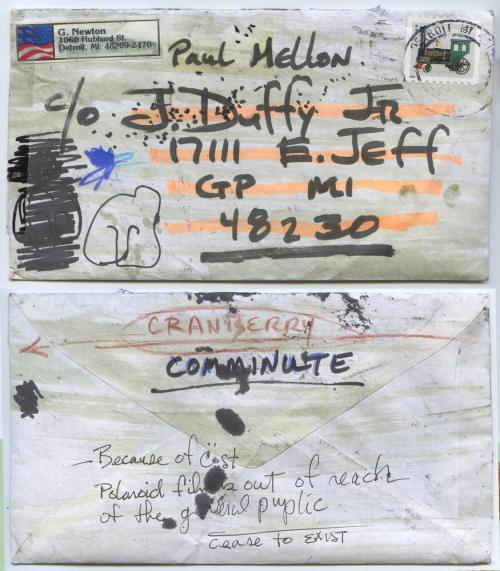 G. Newton
1060 Hubbard St.
Detroit, MI 48209-2470
DETROIT
Paul Mellon
c/o J. Duffy Jr
17111 E. Jeff
GP MI
48230
CRANBERRY
COMMINUTE
— Because of Cost
Polaroid film is out of reach
of the general puplic
Cease to EXIST